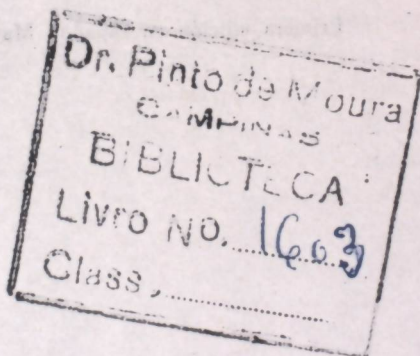 Dr. Pinto de Moura
CAMPINAS
BIBLIOTECA
Livro No. 1603
Class,